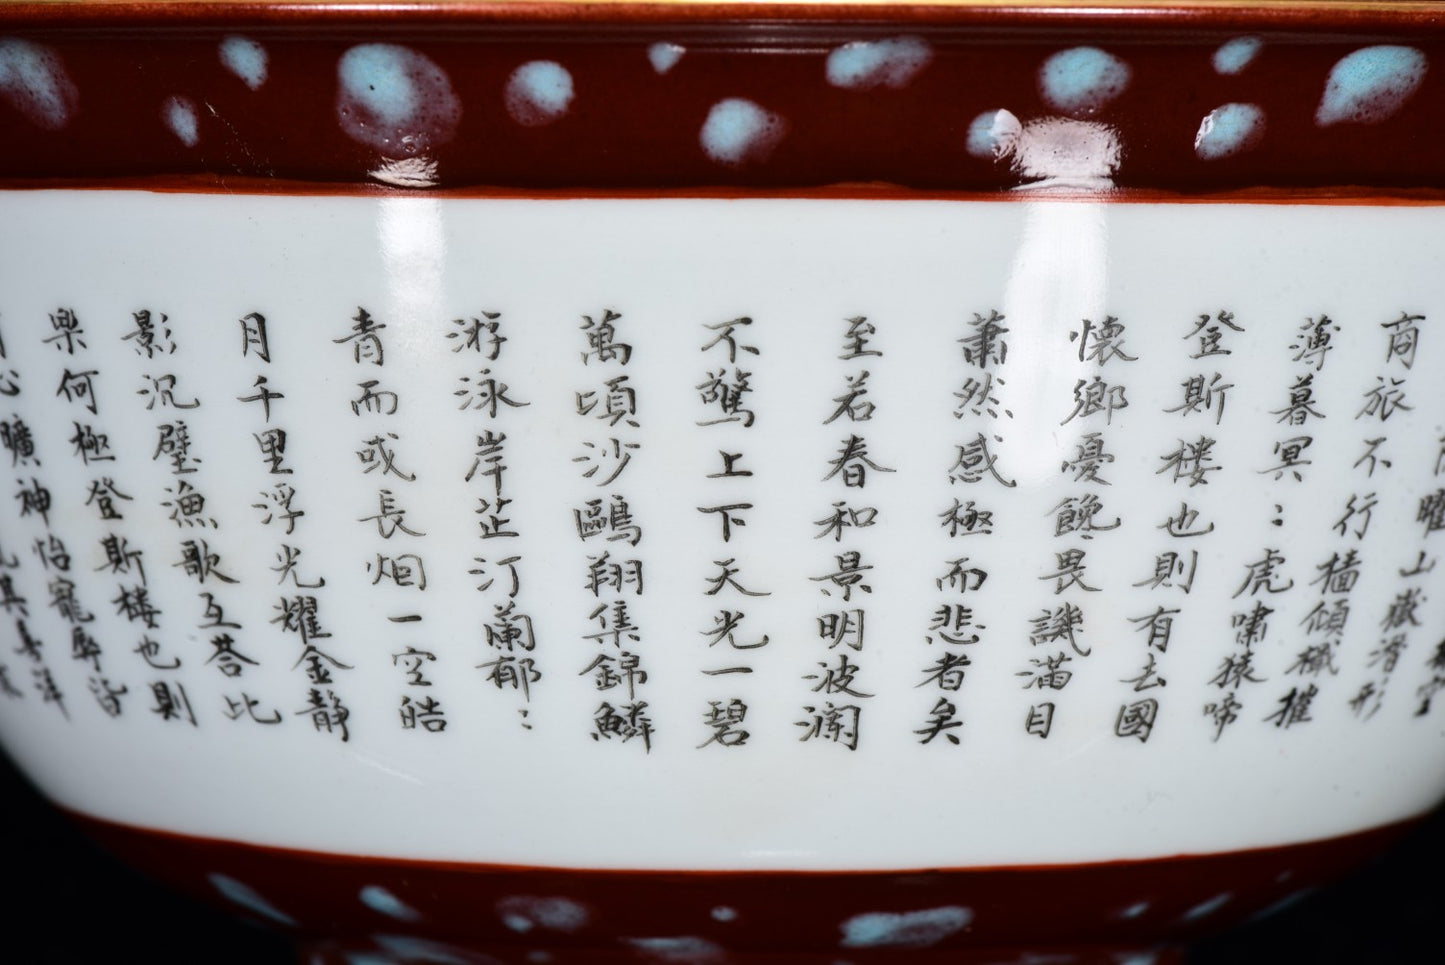 曜山嶽潛形
商旅不行檣傾檝摧
薄暮冥：虎嘯猿啼
登斯樓也則有去國
懷鄉憂饞畏譏滿目
蕭然感極而悲者矣
至若春和景明波瀾
不驚上下天光一碧
萬頃沙鷗翔集錦鱗
游泳岸芷汀蘭郁：
青而或長烟一空皓
月千里浮光耀金靜
影沉璧漁歌互荅比
樂何極登斯樓也則
心曠神怡寵辱皆
其喜洋